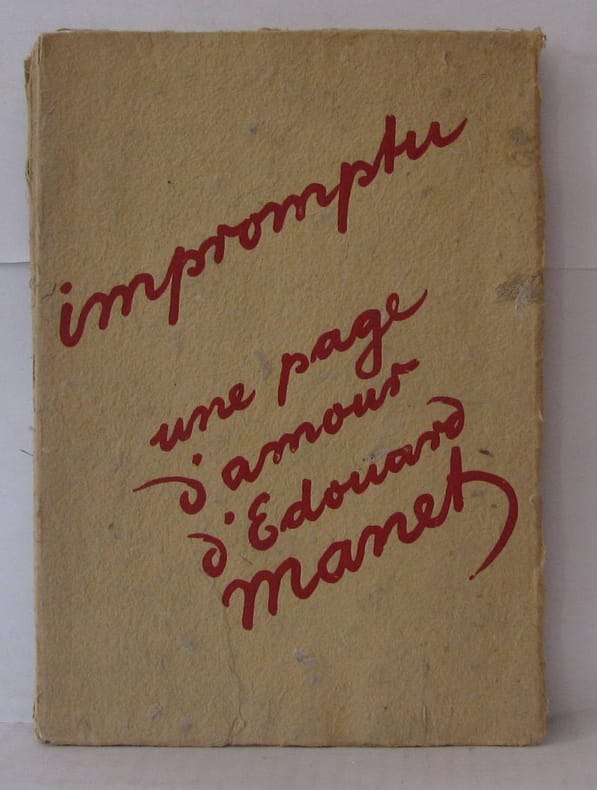 impromptu
une page
d'amour
d'Edouard
manet